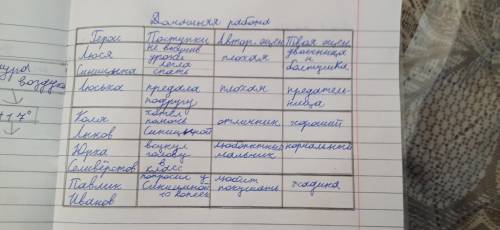 Домашняя работа
Герои Поступки Автор. оцен. Твоя оцен.
Люся Синицына не выучив уроки легла спать плохая двоечница и болтушка
Люська предала подругу плохая предательница
Коля Лыков хотел помочь Синицыной отличник хороший
Юрка Селивёрстов всунул голову в класс любопытный мальчик нормальный
Павлик Иванов попросил у Синицыной 10 копеек любит покушать жадина
воздуха
+17°